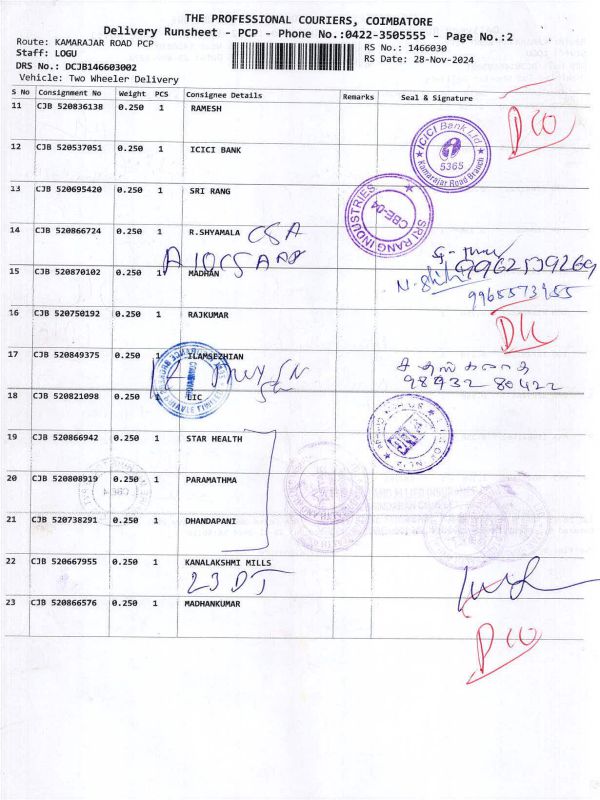 THE PROFESSIONAL COURIERS, COIMBATORE
Delivery Runsheet - PCP - Phone No.:0422-3505555 - Page No.:2
Route: KAMARAJAR ROAD PCP
RS No.: 1466030
Staff: LOGU
RS Date: 28-Nov-2024
DRS No.: DCJB146603002
Vehicle: Two Wheeler Delivery
S No Consignment No Weight PCS Consignee Details Remarks Seal & Signature
11 CJB 520836138 0.250 1 RAMESH
ICICI Bank Ltd
5365
Kamarajar Road Branch
12 CJB 520537051 0.250 1 ICICI BANK
13 CJB 520695420 0.250 1 SRI RANG
SRI RANG INDUSTRIES
CBE-04
14 CJB 520866724 0.250 1 R.SHYAMALA
9962539269
15 CJB 520870102 0.250 1 MADHAN
9965573955
16 CJB 520750192 0.250 1 RAJKUMAR
17 CJB 520849375 0.250 1 ILAMSEZHIAN
98932 80422
18 CJB 520821098 0.250 LIC
19 CJB 520866942 0.250 1 STAR HEALTH
20 CJB 520808919 0.250 1 PARAMATHMA
21 CJB 520738291 0.250 1 DHANDAPANI
22 CJB 520667955 0.250 1 KANALAKSHMI MILLS
23 DT
23 CJB 520866576 0.250 1 MADHANKUMAR